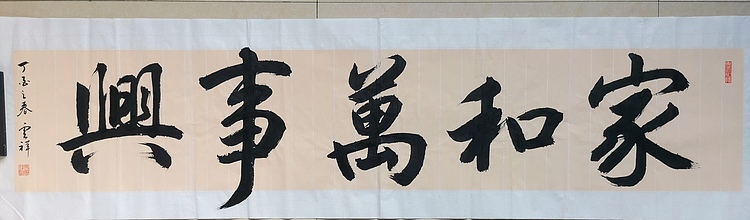 家和萬事興
丁酉之春 雲祥